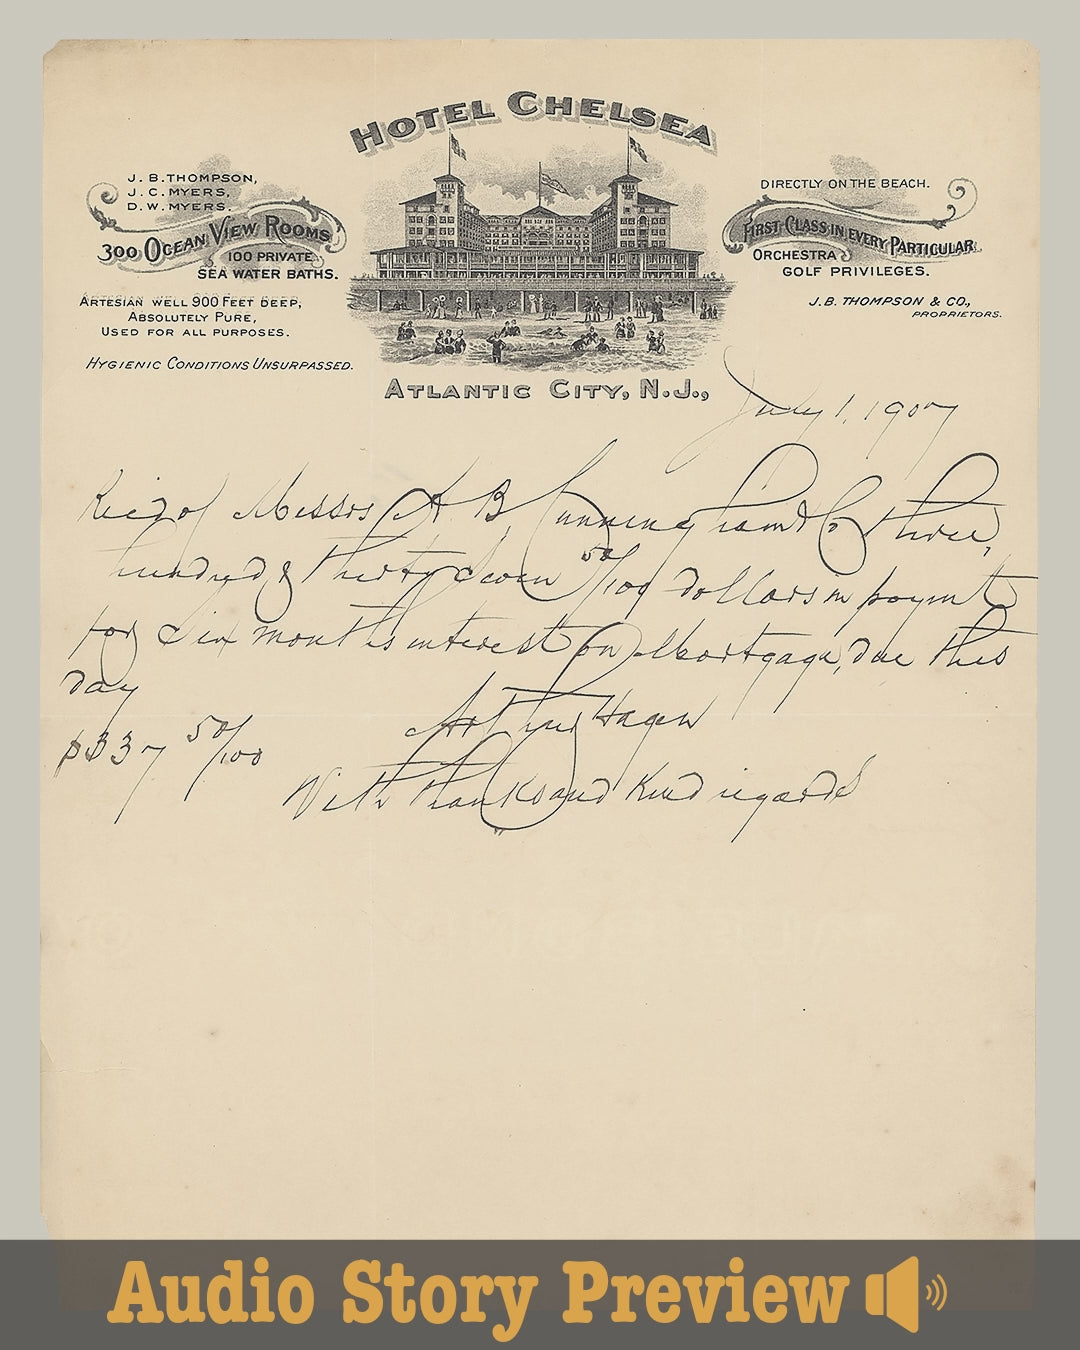 HOTEL CHELSEA
J. B. THOMPSON,
J. C. MYERS,
D. W. MYERS.
300 OCEAN VIEW ROOMS
100 PRIVATE
SEA WATER BATHS.
ARTESIAN WELL 900 FEET DEEP,
ABSOLUTELY PURE,
USED FOR ALL PURPOSES.
HYGIENIC CONDITIONS UNSURPASSED.
DIRECTLY ON THE BEACH.
FIRST CLASS IN EVERY PARTICULAR.
ORCHESTRA
GOLF PRIVILEGES.
J. B. THOMPSON & CO.,
PROPRIETORS.
ATLANTIC CITY, N.J.,
July 1, 1907
Rec'd of Messrs A B Cunningham & Co three
hundred & thirty seven 50/100 dollars in paymt
for six months interest on Mortgage, due this
day
Arthur Hagen
$337 50/100
With thanks and kind regards
Audio Story Preview